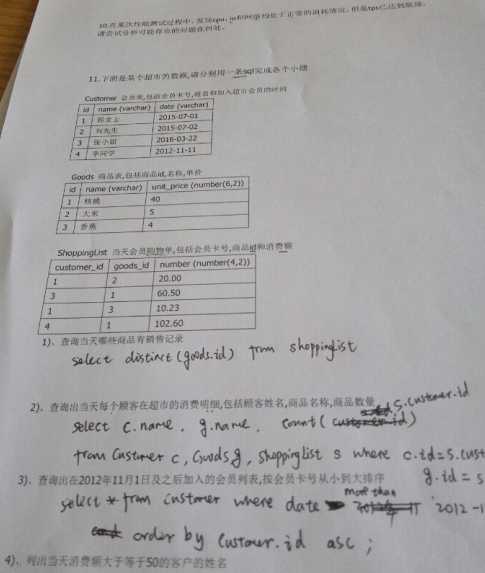 10.在某次性能测试过程中，发现cpu，
请尝试分析可能存在的问题在何处。
11.下面是某个超市的数据,请分别用一条sql完成各个小题
Customer 会员表,包括会员卡号,姓名和加入超市会员的时间
id name (varchar) date (varchar)
1 2015-07-01
2 刘先生 2015-07-02
3 张小姐 2016-03-22
4 李同学 2012-11-11
Goods 商品表,包括商品id,名称,单价
id name (varchar) unit_price (number(6,2))
1 核桃 40
2 大米 5
3 香蕉 4
ShoppingList 当天会员购物单,包括会员卡号,商品id和消费额
customer_id goods_id number (number(4,2))
1 2 20.00
3 1 60.50
1 3 10.23
4 1 102.60
1)、查询当天哪些商品有销售记录
select distinct (goods.id) from shoppinglist
2)、查询出当天每个顾客在超市的消费明细,包括顾客姓名,商品名称,商品数量
select c.name, g.name, count( s.customer.id
from Customer c, Goods g, shoppinglist s where c.id=s.cust
g.id = s
3)、查询出在2012年11月1日及之后加入的会员列表,按会员卡号从小到大排序
select * from customer where date more than 2012-1
order by customer.id asc ;
4)、列出当天消费额大于等于50的客户的姓名